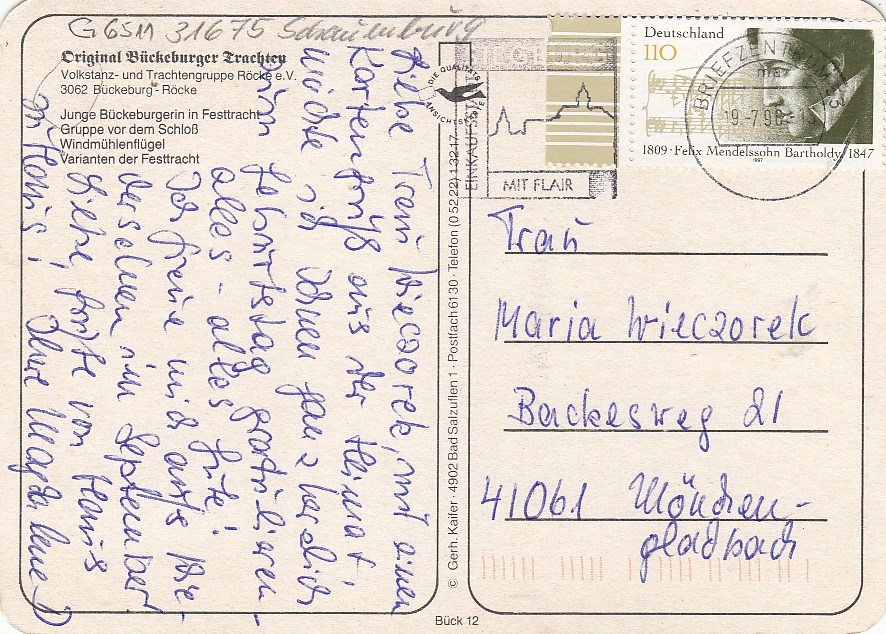 G65M 31675 Schaumburg
Original Bückeburger Trachten
Volkstanz- und Trachtengruppe Röcke e.V.
3062 Bückeburg - Röcke
Junge Bückeburgerin in Festtracht
Gruppe vor dem Schloß
Windmühlenflügel
Varianten der Festtracht
Liebe Frau Wieczorek, mit einem
Kartengruß aus der Heimat
möchte ich Ihnen ganz herzlich
zum Geburtstag gratulieren -
alles - alles Gute!
Ich freue mich aufs Wie-
dersehen im September!
Liebe Grüße von Haus
zu Haus!
Ihre Magdalene
DIE QUALITÄTS
ANSICHTSKARTE
EINKAUFSSTADT
MIT FLAIR
BRIEFZENTRUM
19.-7.98
Deutschland
110
1809 · Felix Mendelssohn Bartholdy · 1847
1997
© Gerh. Kaifer · 4902 Bad Salzuflen 1 · Postfach 6130 · Telefon (0 52 22) 1 32 17
Frau
Maria Wieczorek
Backesweg 21
41061 Mönchen-
gladbach
Bück 12